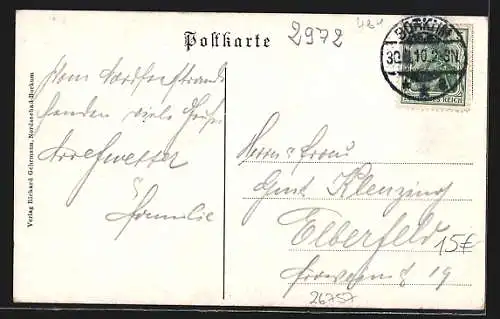 Postkarte
2972
BORKUM
30. 10. 2-3N
DEUTSCHES REICH
Vom Nordseestrande
senden viele Grüße
Familie
Herrn u Frau
Gust Klenzing
Elberfeld
19
15€
26757
Verlag Richard Gehrmann, Nordseebad-Borkum